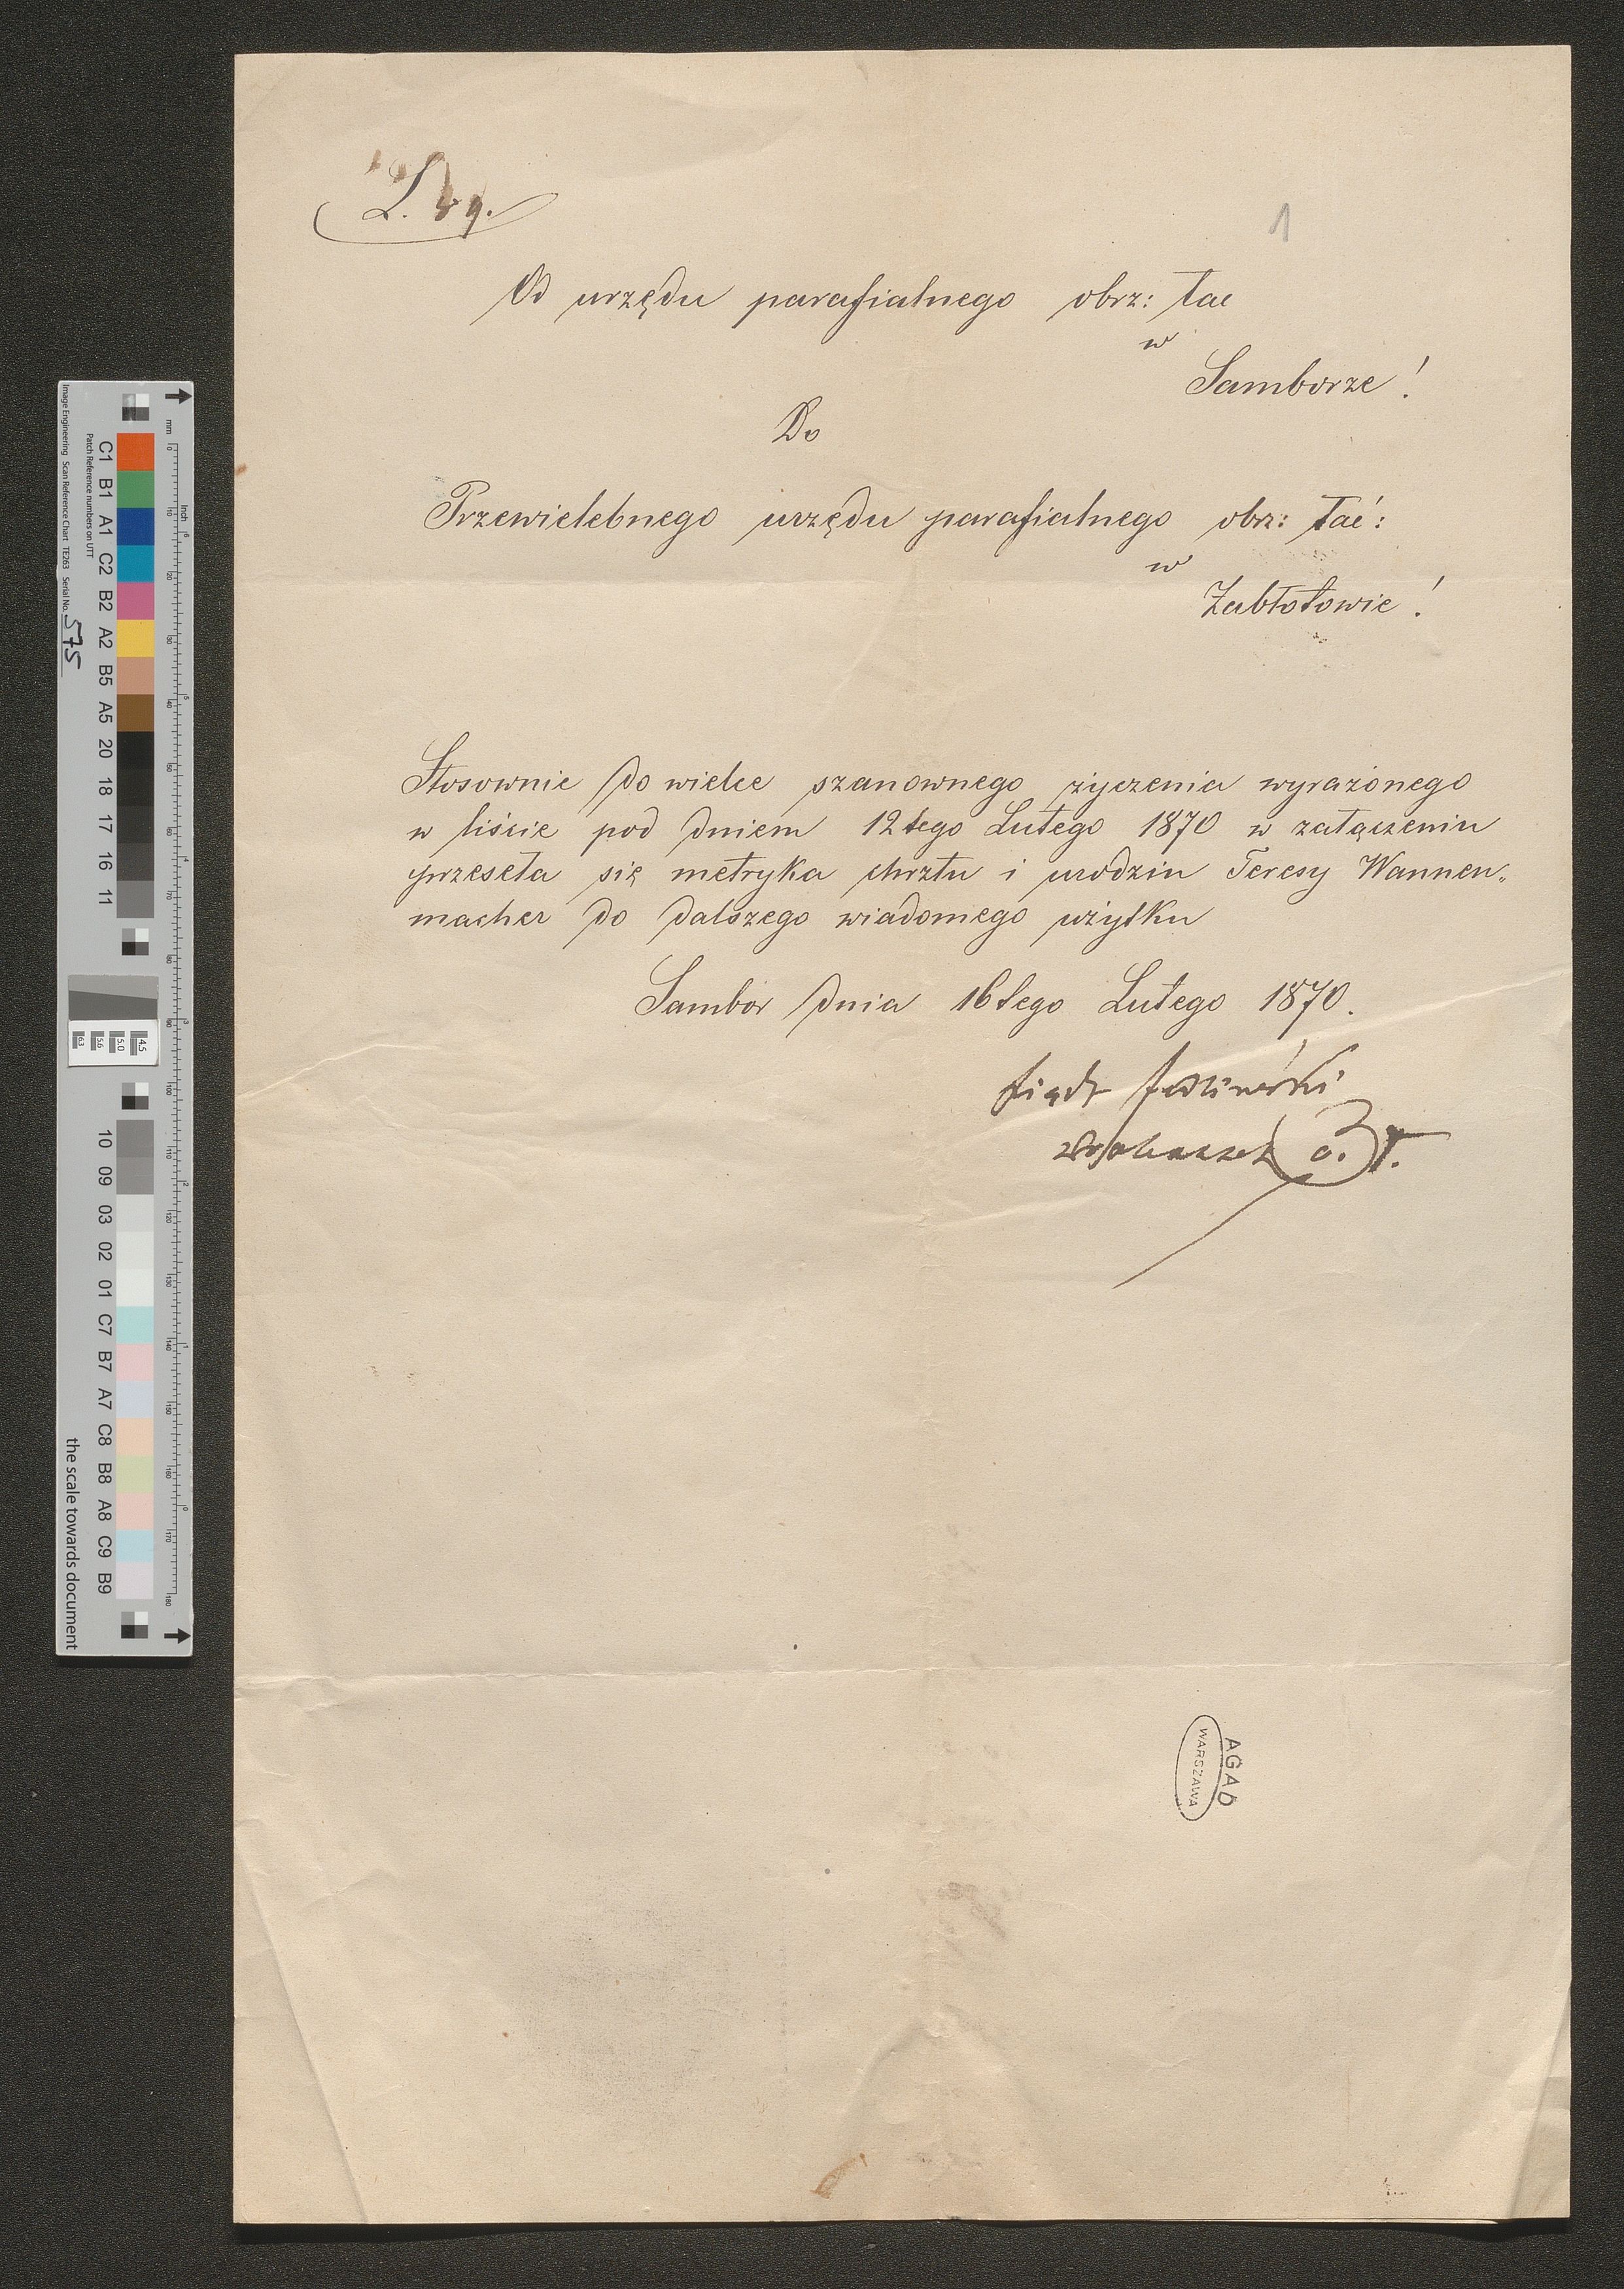 L. 89.
1
Od urzędu parafialnego obrz: łac
w
Samborze!
Do
Przewielebnego urzędu parafialnego obrz: łać:
w
Zabłotowie!
Stosownie do wielce szanownego życzenia wyrażonego
w liście pod dniem 12tego Lutego 1870 w załączeniu
przeseła się metryka chrztu i urodzin Teresy Wannen„
macher do dalszego wiadomego użytku
Sambor dnia 16tego Lutego 1870.
AGAD
WARSZAWA
Image Engineering Scan Reference Chart TE263 Serial No. 575
Patch Reference numbers on UTT
C1 B1 A1 C2 B2 A2 B5 A5 20 18 17 16 11
10 09 03 02 01 C7 B7 A7 C8 B8 A8 C9 B9
the scale towards document